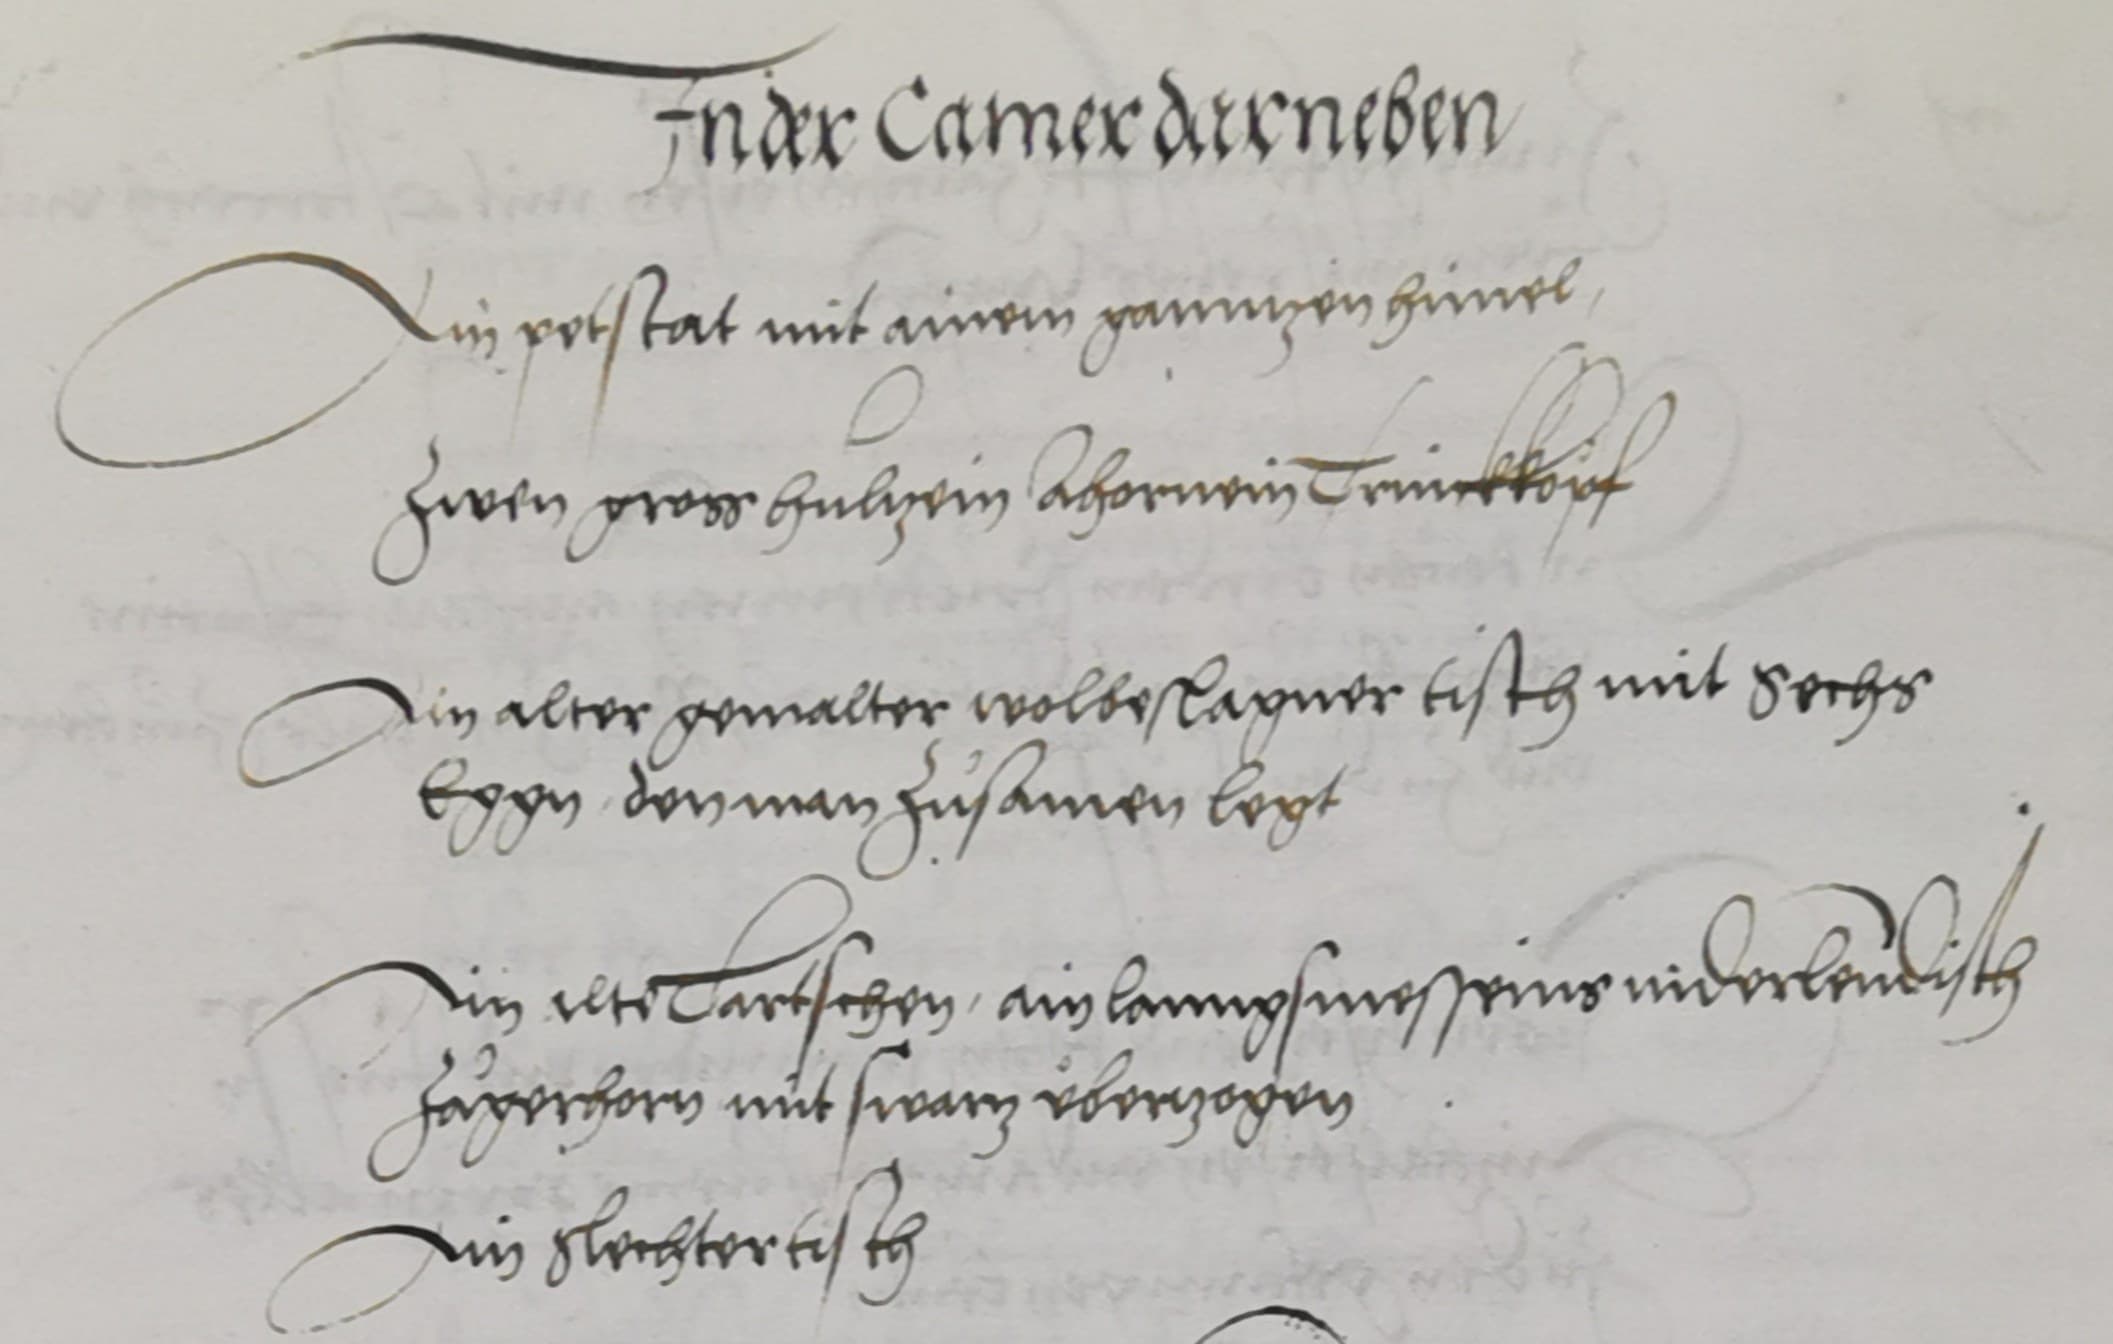 In der Camer darneben
Ain petstat mit ainem ganntzen himel,
Zwen gross hultzein Ahornein Trinckköpf
Ain alter gemalter wolbeslagner tisch mit Sechs
Eggn, den man zusamen legt
Ain alte Tartschen, ain lanngs messeins niderlendisch
Jägerhorn mit swartz vberzogen
Ain slechter tisch